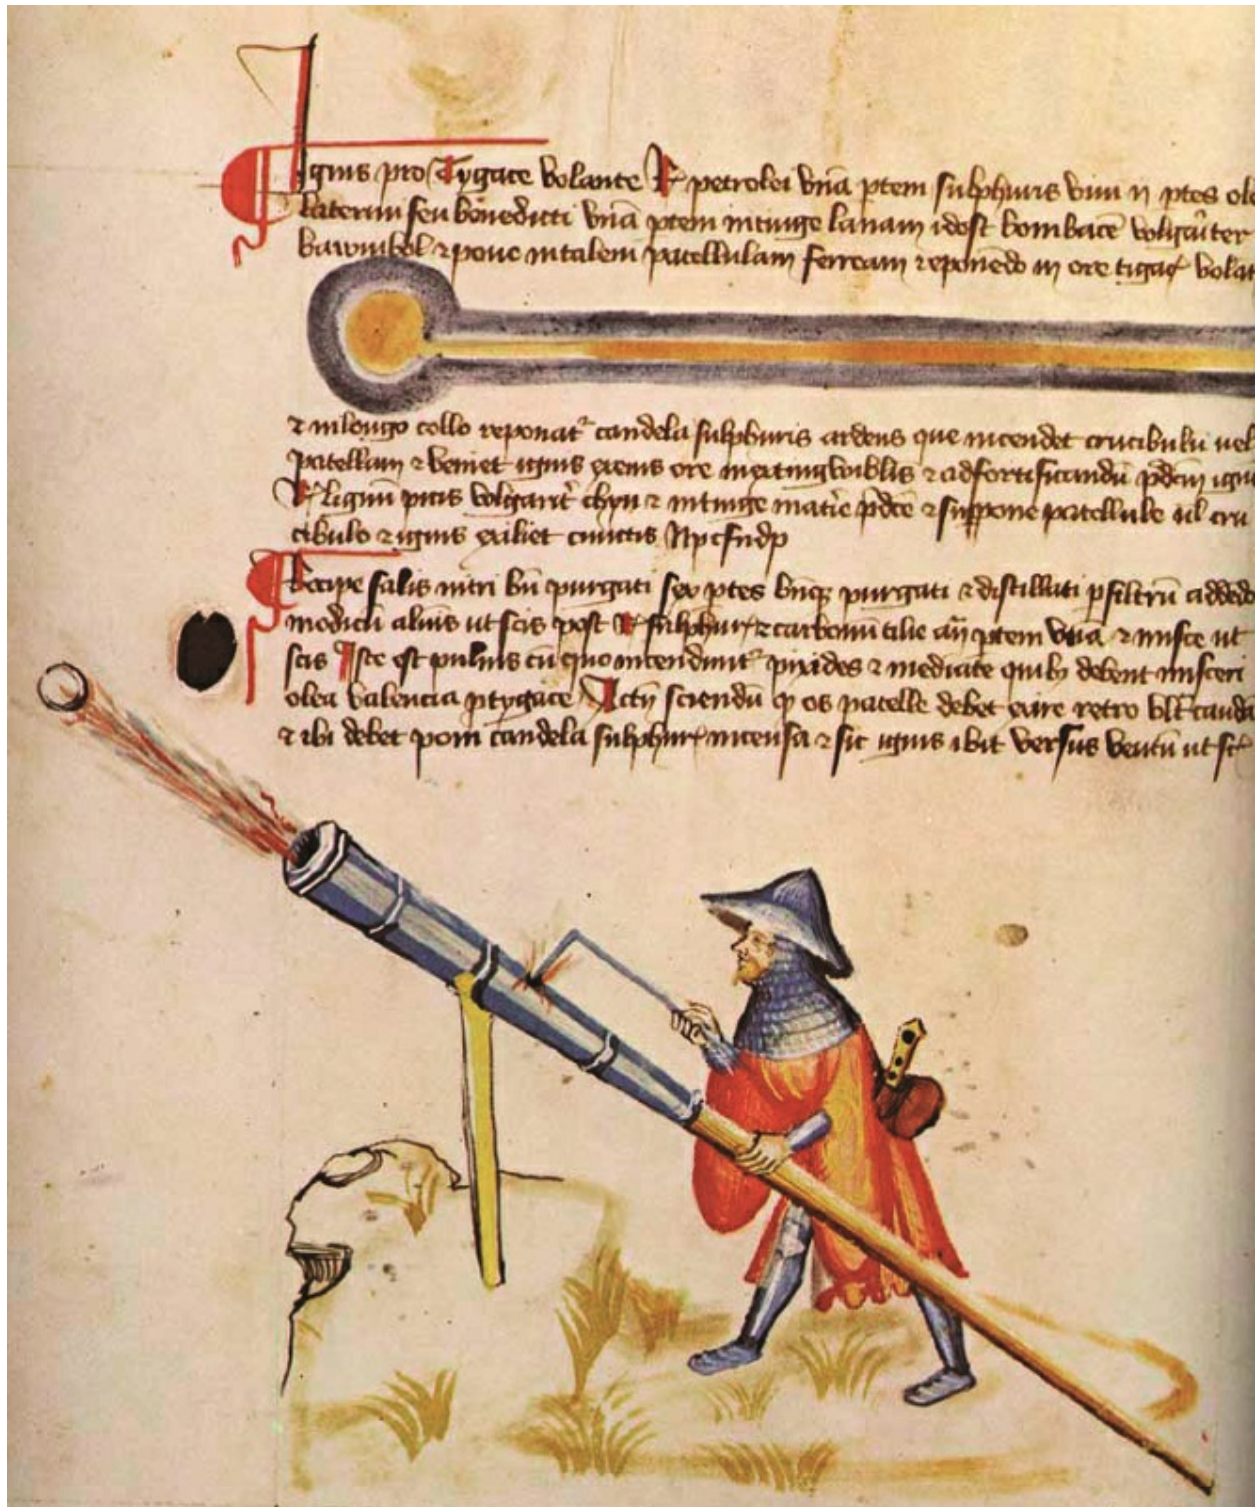 Ignis pro Tygace volante Rx petrolei vnā ptem sulphuris viui ii ptes ole
laterini seu benedicti vnā ptem intinge lanam idest bombacē
et pone in talem patellulam ferream reponēdo in ore volat
et in longo collo reponat candela sulphuris ardens que incendet crucibulū uel
patellam et veniet ignis exiens ore inextinguibilis et ad fortificandū p̄dcm ignē
Rx lignū picis et intinge matīe p̄dcē et suppone patellule ul cru
cibulo et ignis exiliet cunctis Npcfndp
Recipe salis nitri bn̄ purgati sex ptes purgati et distillati p filtrū addēdo
modicū aluīs ut scis post Rx sulphur et carbonū tilie an̄ ptem vnā et misce ut
scis Iste est puluis cū quo incendunt pixides et debent misceri
olea ptygace sciendū os patelle debet exire retro cauda
et ibi debet poni candela sulphur incensa et sic ignis ibit versus ventū ut sc